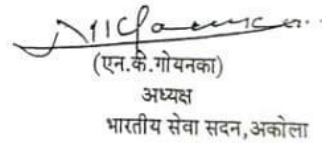 (एन.के.गोयनका)
अध्यक्ष
भारतीय सेवा सदन,अकोला